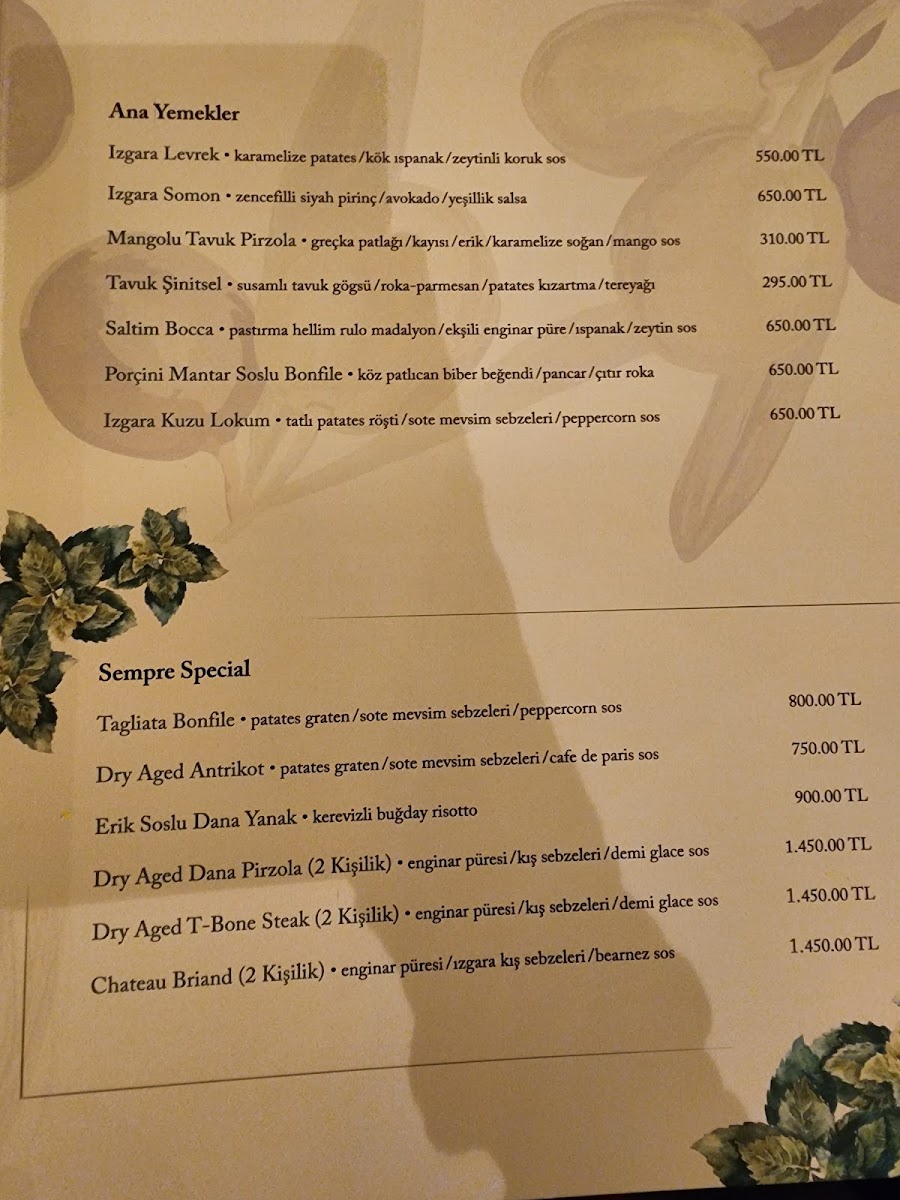 Ana Yemekler
Izgara Levrek • karamelize patates/kök ıspanak/zeytinli koruk sos 550.00 TL
Izgara Somon • zencefilli siyah pirinç/avokado/yeşillik salsa 650.00 TL
Mangolu Tavuk Pirzola • greçka patlağı/kayısı/erik/karamelize soğan/mango sos 310.00 TL
Tavuk Şinitsel • susamlı tavuk gögsü/roka-parmesan/patates kızartma/tereyağı 295.00 TL
Saltim Bocca • pastırma hellim rulo madalyon/ekşili enginar püre/ıspanak/zeytin sos 650.00 TL
Porçini Mantar Soslu Bonfile • köz patlıcan biber beğendi/pancar/çıtır roka 650.00 TL
Izgara Kuzu Lokum • tatlı patates röşti/sote mevsim sebzeleri/peppercorn sos 650.00 TL
Sempre Special
Tagliata Bonfile • patates graten/sote mevsim sebzeleri/peppercorn sos 800.00 TL
Dry Aged Antrikot • patates graten/sote mevsim sebzeleri/cafe de paris sos 750.00 TL
Erik Soslu Dana Yanak • kerevizli buğday risotto 900.00 TL
Dry Aged Dana Pirzola (2 Kişilik) • enginar püresi/kış sebzeleri/demi glace sos 1.450.00 TL
Dry Aged T-Bone Steak (2 Kişilik) • enginar püresi/kış sebzeleri/demi glace sos 1.450.00 TL
Chateau Briand (2 Kişilik) • enginar püresi/ızgara kış sebzeleri/bearnez sos 1.450.00 TL